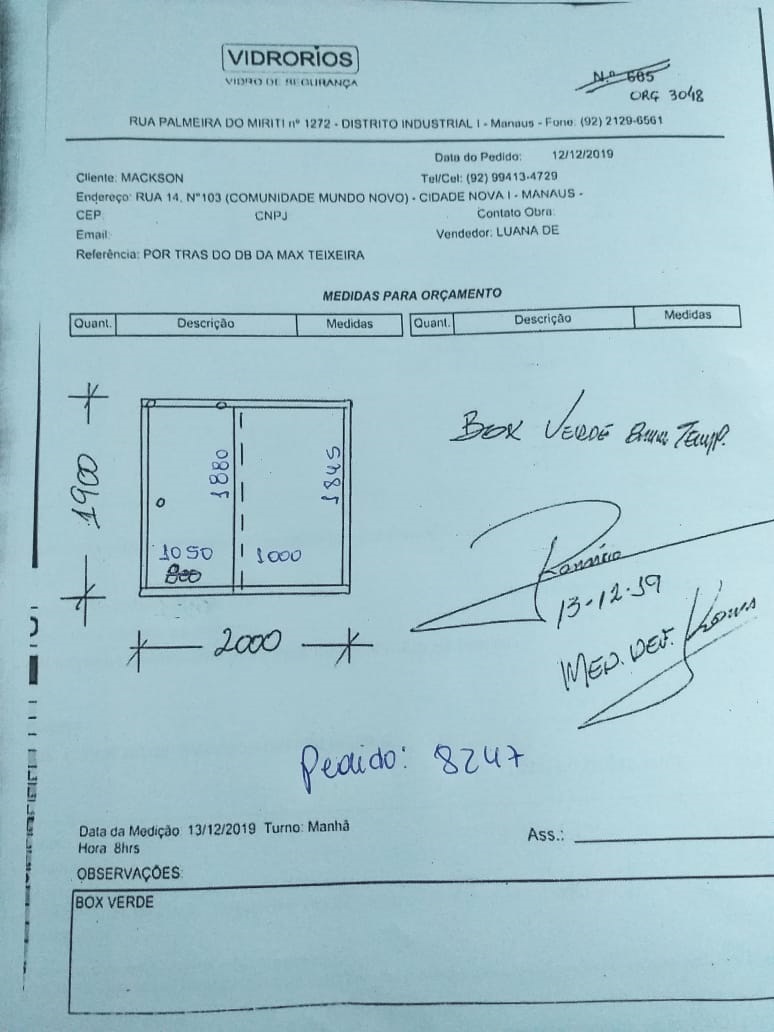 VIDRORIOS
VIDRO DE SEGURANÇA
N.º 605
ORG 3048
RUA PALMEIRA DO MIRITI nº 1272 - DISTRITO INDUSTRIAL I - Manaus - Fone: (92) 2129-6561
Data do Pedido: 12/12/2019
Cliente: MACKSON Tel/Cel: (92) 99413-4729
Endereço: RUA 14, Nº103 (COMUNIDADE MUNDO NOVO) - CIDADE NOVA I - MANAUS -
CEP CNPJ Contato Obra:
Email: Vendedor: LUANA DE
Referência: POR TRAS DO DB DA MAX TEIXEIRA
MEDIDAS PARA ORÇAMENTO
Quant. Descrição Medidas Quant. Descrição Medidas
BOX VERDE TEMP.
1900
1880
1845
1050 1000
800
2000
13-12-19
MED. DEF.
Pedido: 8247
Data da Medição 13/12/2019 Turno: Manhã
Hora 8hrs
Ass.:
OBSERVAÇÕES
BOX VERDE